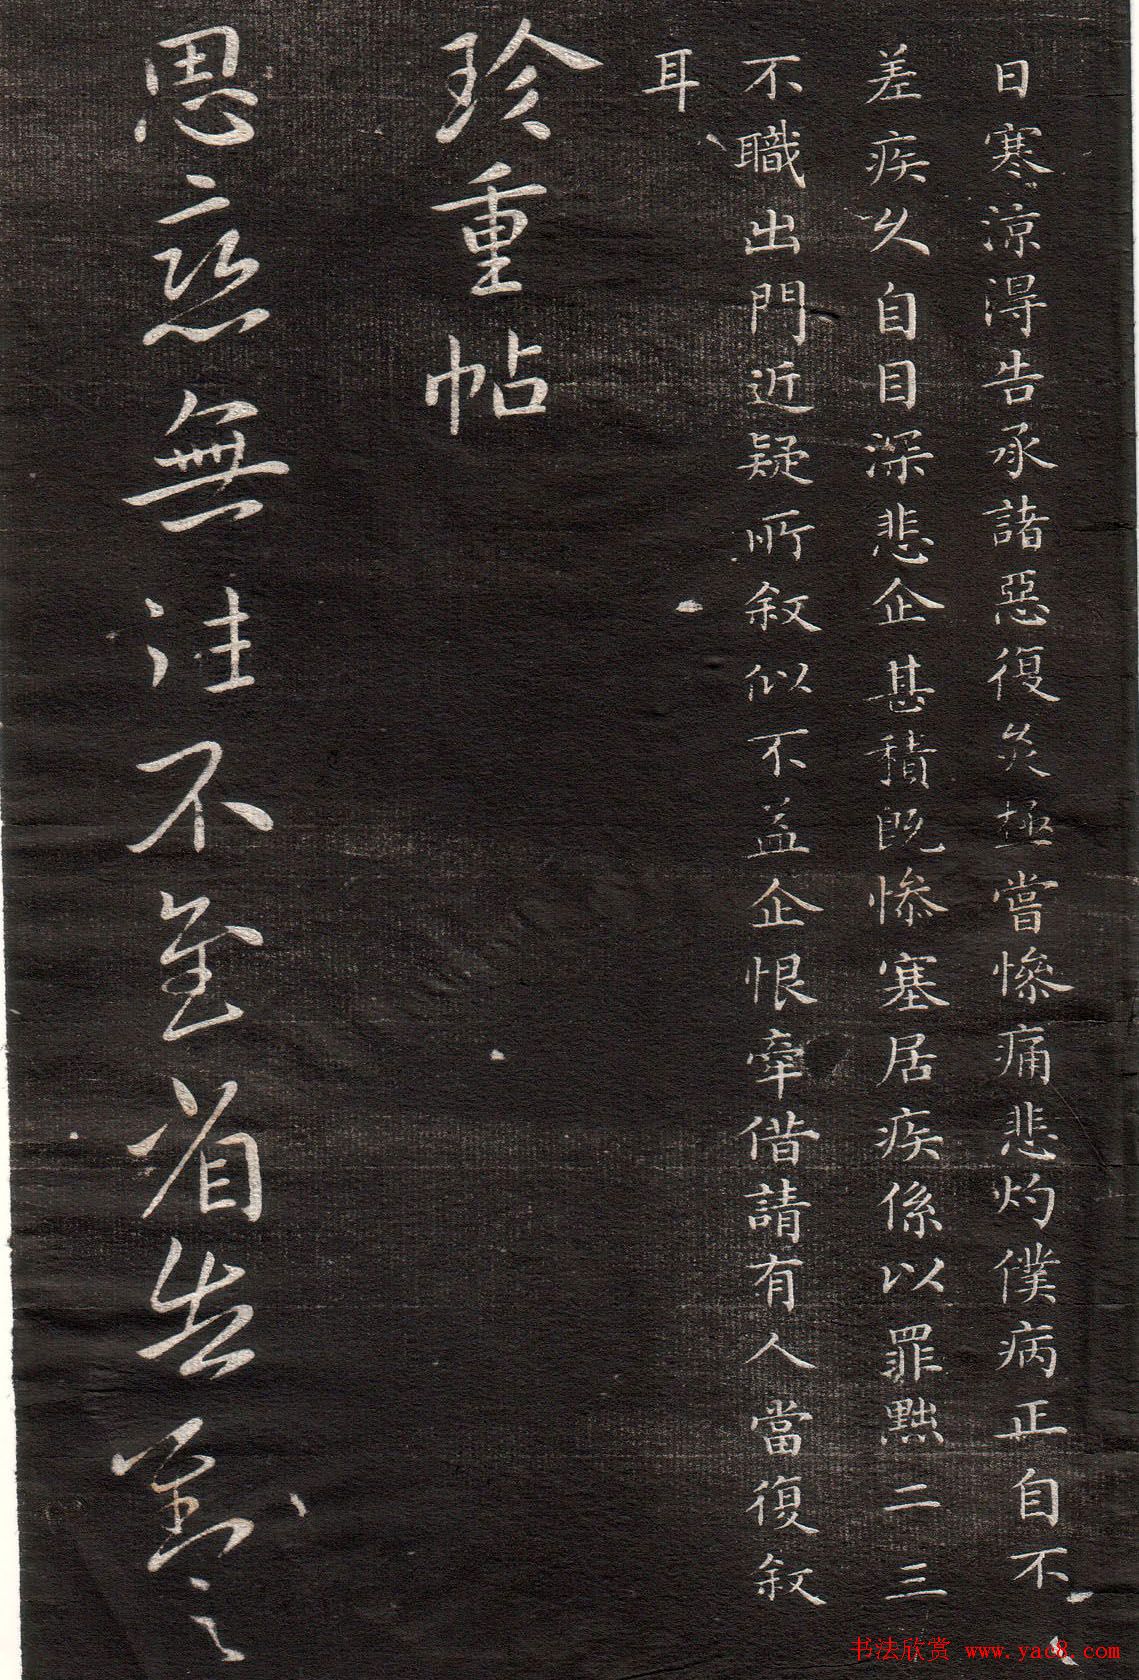 日寒涼得告承諸惡復灸極嘗慘痛悲灼僕病正自不
差疾久自目深悲企甚積既慘塞居疾係以罪黜二三
不職出門近疑所敘似不益企恨牽借請有人當復敘
耳
珍重帖
思戀無往不至省告對之
书法欣赏 www.yac8.com